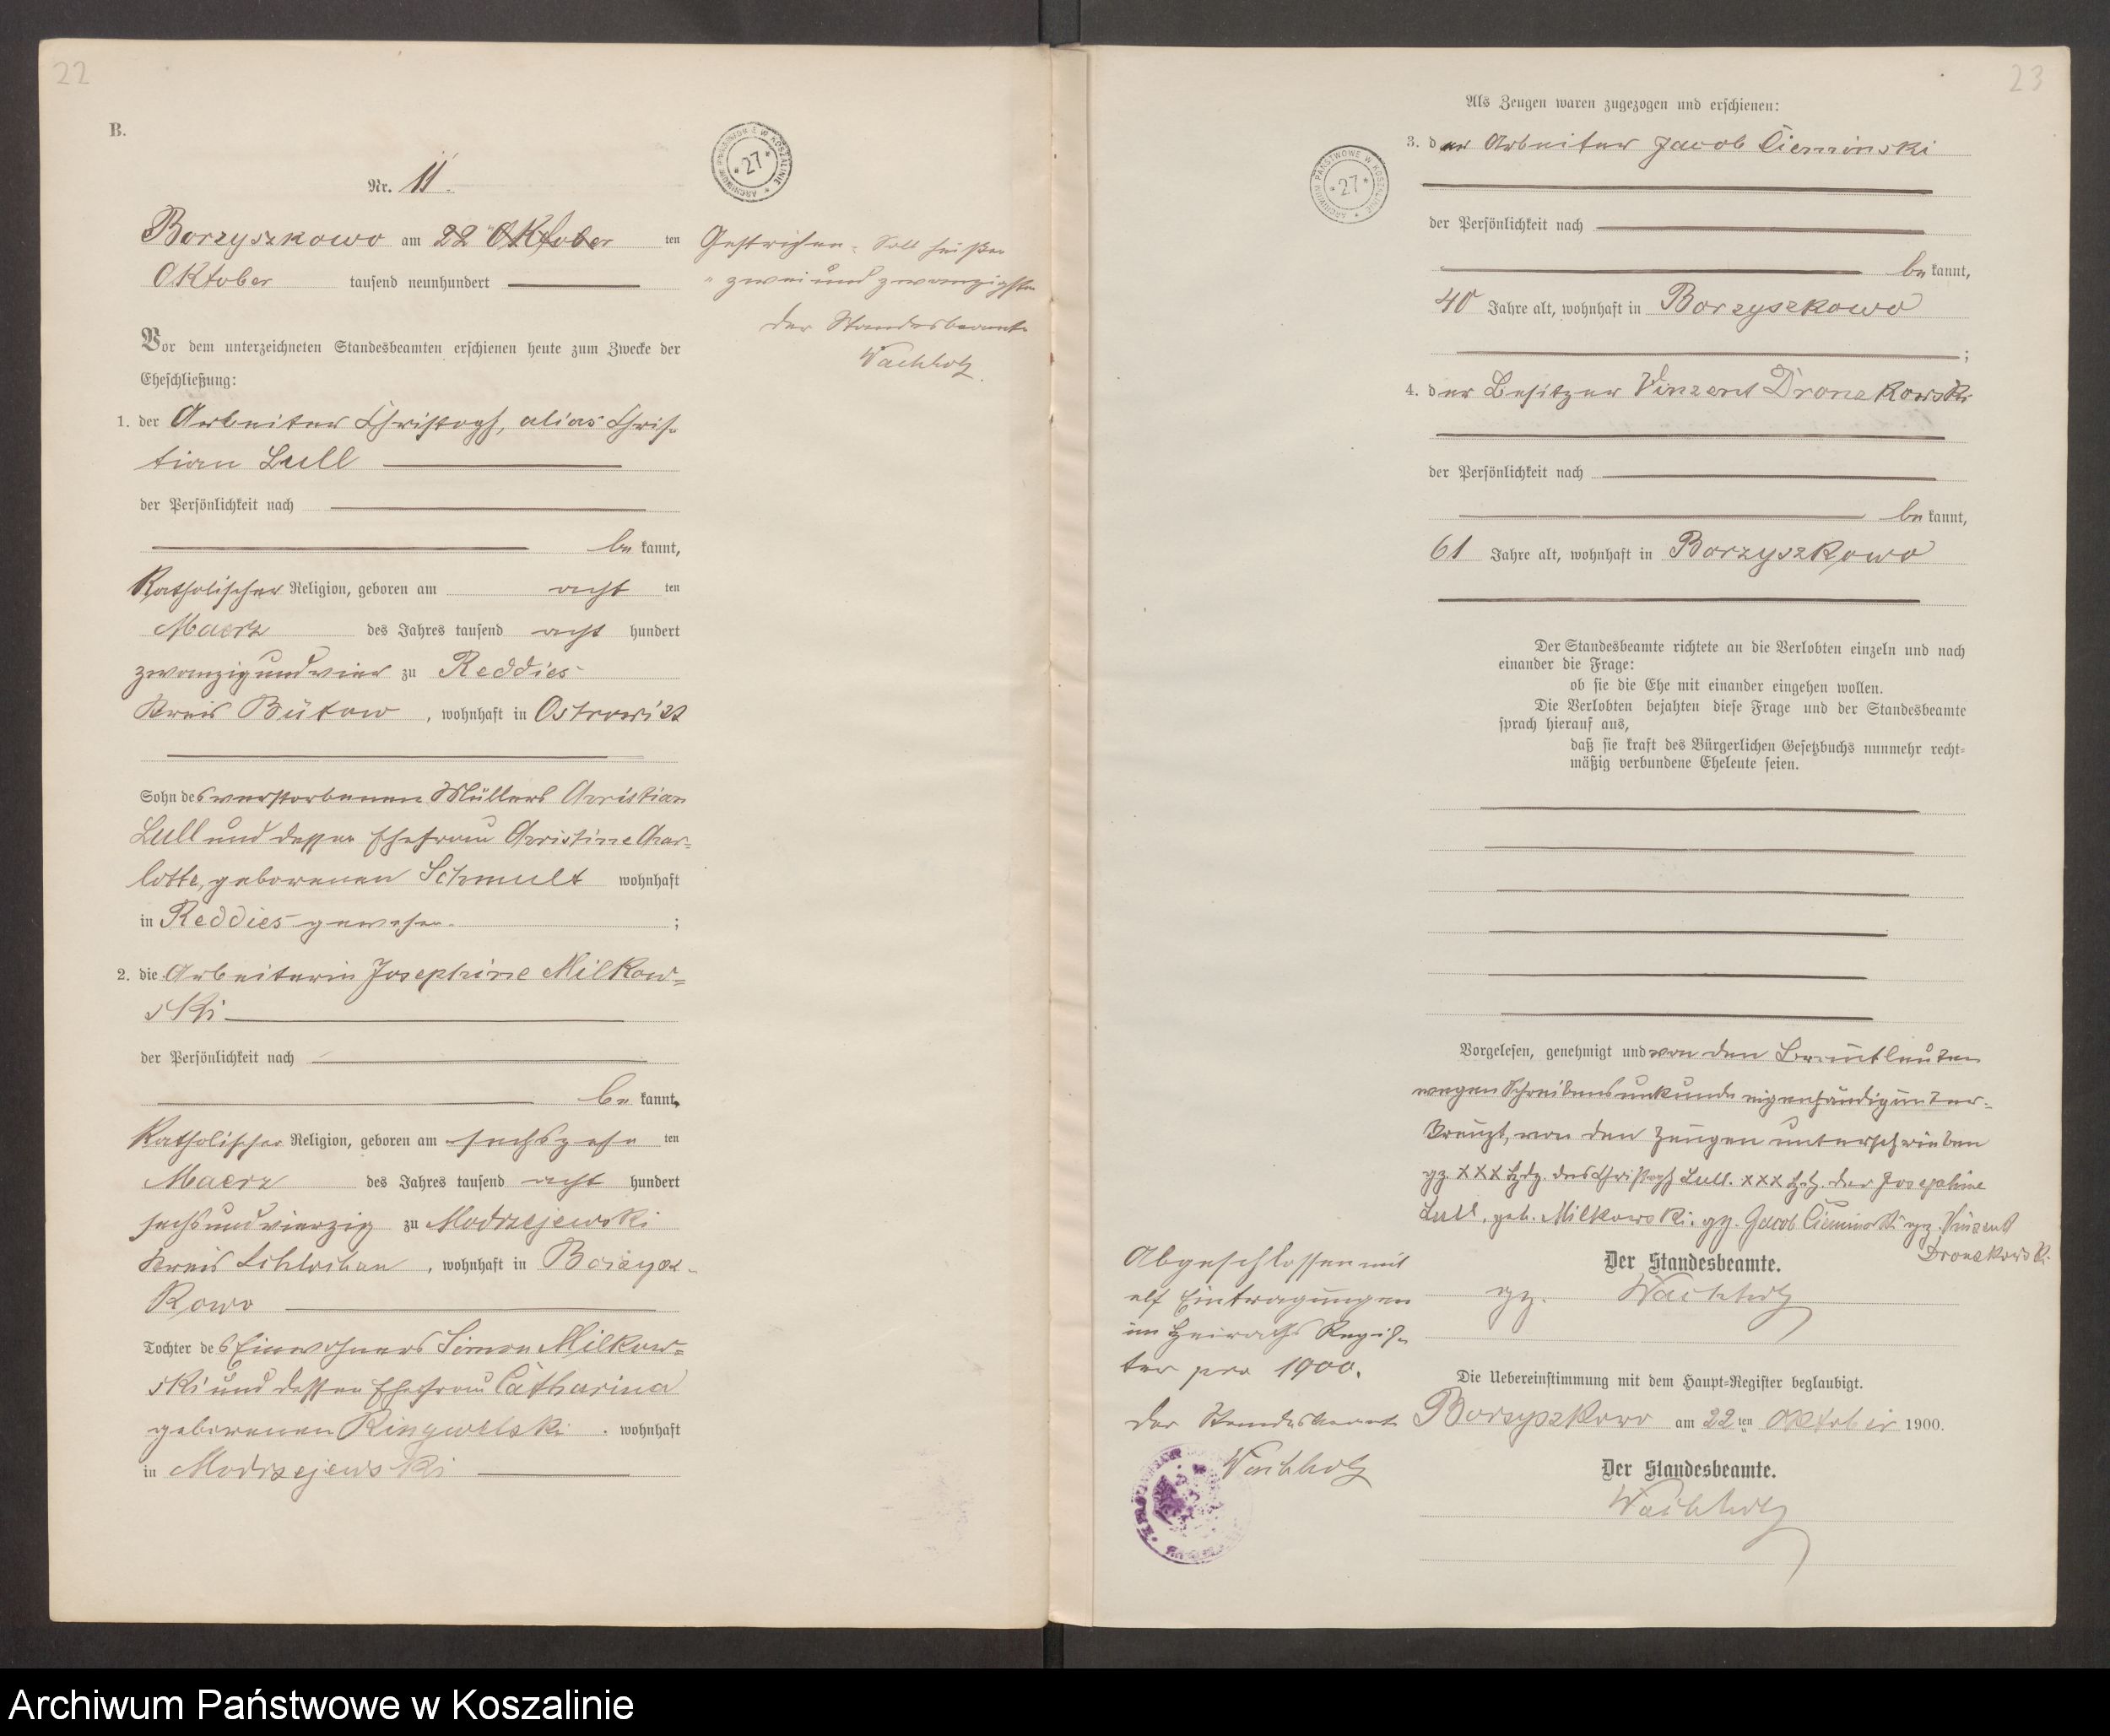 22
B.
Nr. 11.
ARCHIWUM PAŃSTWOWE W KOSZALINIE * 27 *
Borzyszkowo am 22 Oktober ten
Oktober tausend neunhundert
Gestrichen. Soll heißen
"zweiundzwanzigsten
Der Standesbeamte
Wachholz.
Vor dem unterzeichneten Standesbeamten erschienen heute zum Zwecke der
Eheschließung:
1. der Arbeiter Christoph, alias Chris-
tian Lull
der Persönlichkeit nach
be kannt,
Katholischer Religion, geboren am acht ten
Maerz des Jahres tausend acht hundert
zwanzigundvier zu Reddies
Kreis Bütow, wohnhaft in Ostrowitt
Sohn des verstorbenen Müllers Christian
Lull und dessen Ehefrau Christine Char-
lotte, geborenen Schmult wohnhaft
in Reddies gewesen. ;
2. die Arbeiterin Josephine Milkow-
ski
der Persönlichkeit nach
be kannt,
Katholischer Religion, geboren am sechszehn ten
Maerz des Jahres tausend acht hundert
sechsundvierzig zu Modrzejewski
Kreis Schlochau, wohnhaft in Borzysz-
kowo
Tochter des Einwohners Simon Milkow-
ski und dessen Ehefrau Catharina
geborenen Ringwelski. wohnhaft
in Modrzejewski
23
ARCHIWUM PAŃSTWOWE W KOSZALINIE * 27 *
Als Zeugen waren zugezogen und erschienen:
3. der Arbeiter Jacob Cieminski
der Persönlichkeit nach
be kannt,
40 Jahre alt, wohnhaft in Borzyszkowo
;
4. der Besitzer Vinzent Dronzkowski
der Persönlichkeit nach
be kannt,
61 Jahre alt, wohnhaft in Borzyszkowo
Der Standesbeamte richtete an die Verlobten einzeln und nach
einander die Frage:
ob sie die Ehe mit einander eingehen wollen.
Die Verlobten bejahten diese Frage und der Standesbeamte
sprach hierauf aus,
daß sie kraft des Bürgerlichen Gesetzbuchs nunmehr recht-
mäßig verbundene Eheleute seien.
Vorgelesen, genehmigt und von den Brautleuten
wegen Schreibensunkunde eigenhändig unter-
kreuzt, von den Zeugen unterschrieben
gz. XXX Hdz. des Christoph Lull. XXX Hdz. der Josephine
Lull, geb. Milkowski. gz. Jacob Cieminski gz. Vinzent
Dronzkowski.
Der Standesbeamte.
gz. Wachholz
Abgeschlossen mit
elf Eintragungen
im Heiraths Regis-
ter pro 1900.
Der Standesbeamte
Wachholz
Die Uebereinstimmung mit dem Haupt-Register beglaubigt.
Borzyszkowo am 22 ten Oktober 1900.
Der Standesbeamte.
Wachholz
Archiwum Państwowe w Koszalinie